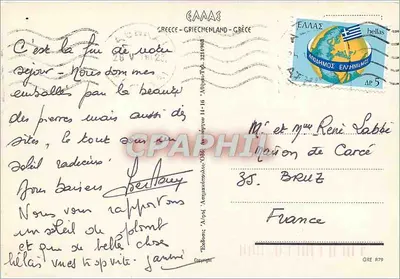 ΕΛΛΑΣ
GREECE - GRIECHENLAND - GRÈCE
C'est la fin de notre
séjour - Nous sommes
emballés par la beauté
des pierres mais aussi des
sites, le tout sous un
soleil radieux.
Bons baisers
Nous vous rapportons
un soleil de plomb
et que de belles choses
hélas vues trop vite - Janine
ΕΛΛΑΣ
hellas
ΑΠΟΔΗΜΟΣ ΕΛΛΗΝΙΣΜΟΣ
ΔΡ 5
Mr et Mme René Labbé
Maison de Carcé
35. BRUZ
France
GRE 879
CPAPHIL